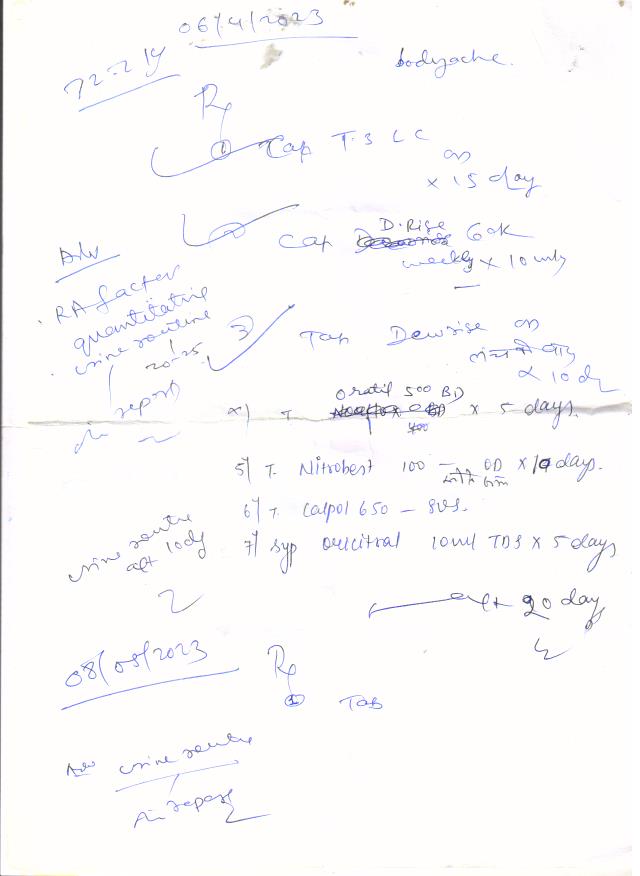 06/4/2023
bodyache.
Rx
① Cap T-3 L C
OD
x 15 day
② Cap D.Rise 60K
weekly x 10 wkly
Adv
. RA factor
quantitative
. urine routine
20-25
report
3) Tab Dewrise OD
x 10 dy
4) T. Oratil 500 BD x 5 days.
5) T. Nitrobest 100 - OD x 10 days.
6) T. Calpol 650 - SOS.
7) Syp 10ml TDS x 5 days
urine routine
aft 10dy
aft 20 day
08/05/2023
Rx
① Tab
Adv urine routine
report